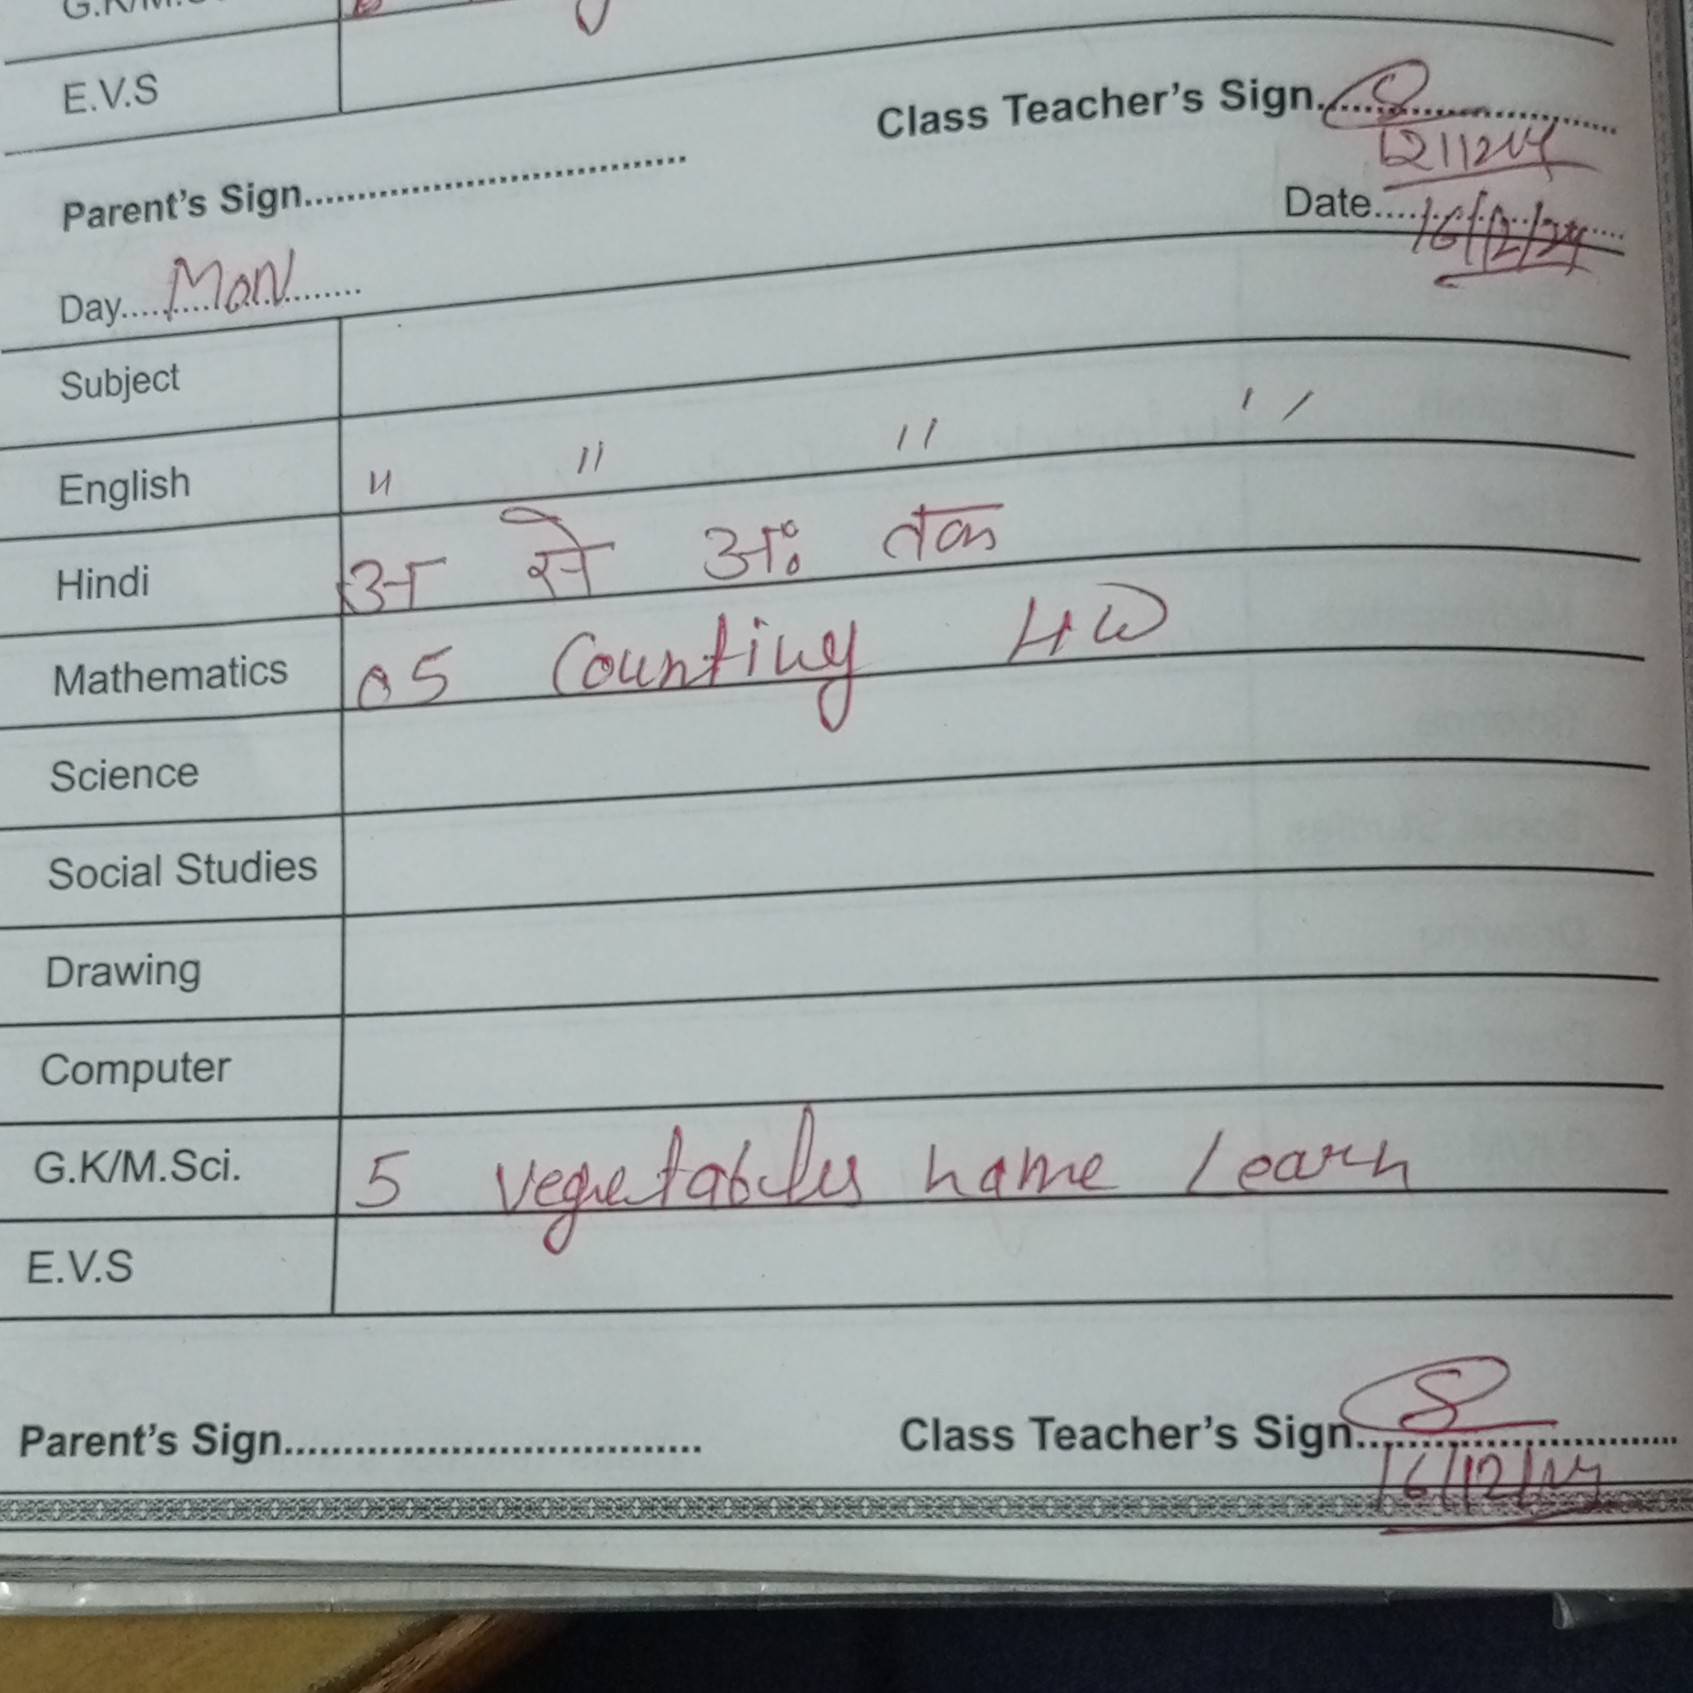 E.V.S
Class Teacher's Sign.
12/12/24
Parent's Sign.
Date 16/12/24
Day MON
Subject
English " " " "
Hindi अ से अः तक
Mathematics 05 Counting HW
Science
Social Studies
Drawing
Computer
G.K/M.Sci. 5 vegetables name Learn
E.V.S
Parent's Sign.
Class Teacher's Sign.
16/12/24